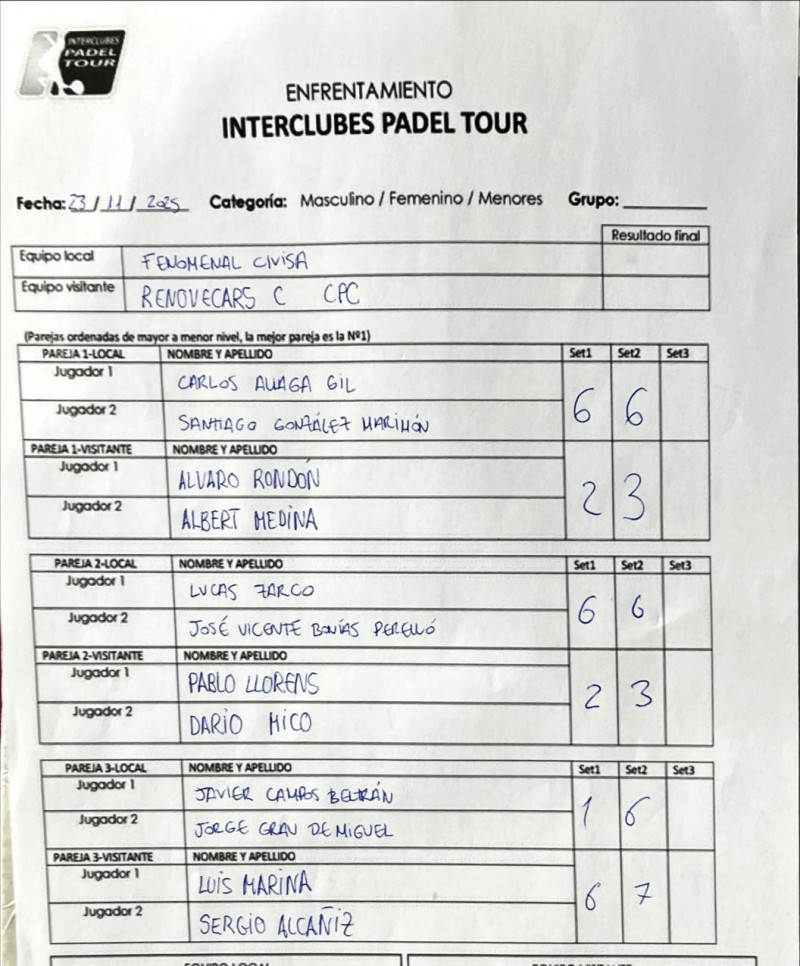 INTERCLUBES
PADEL
TOUR
ENFRENTAMIENTO
INTERCLUBES PADEL TOUR
Fecha: 23 / 11 / 2025 Categoría: Masculino / Femenino / Menores Grupo: ________
Resultado final
Equipo local FENOMENAL CIVISA
Equipo visitante RENOVECARS C CPC
(Parejas ordenadas de mayor a menor nivel, la mejor pareja es la Nº1)
PAREJA 1-LOCAL NOMBRE Y APELLIDO Set1 Set2 Set3
Jugador 1 CARLOS ALIAGA GIL
Jugador 2 SANTIAGO GONZÁLEZ MARIMÓN
6 6
PAREJA 1-VISITANTE NOMBRE Y APELLIDO
Jugador 1 ALVARO RONDÓN
Jugador 2 ALBERT MEDINA
2 3
PAREJA 2-LOCAL NOMBRE Y APELLIDO Set1 Set2 Set3
Jugador 1 LUCAS ZARCO
Jugador 2 JOSÉ VICENTE BONÍAS PERELLÓ
6 6
PAREJA 2-VISITANTE NOMBRE Y APELLIDO
Jugador 1 PABLO LLORENS
Jugador 2 DARIO MICO
2 3
PAREJA 3-LOCAL NOMBRE Y APELLIDO Set1 Set2 Set3
Jugador 1 JAVIER CAMPOS BELTRÁN
Jugador 2 JORGE GRAU DE MIGUEL
1 6
PAREJA 3-VISITANTE NOMBRE Y APELLIDO
Jugador 1 LUIS MARINA
Jugador 2 SERGIO ALCAÑIZ
6 7